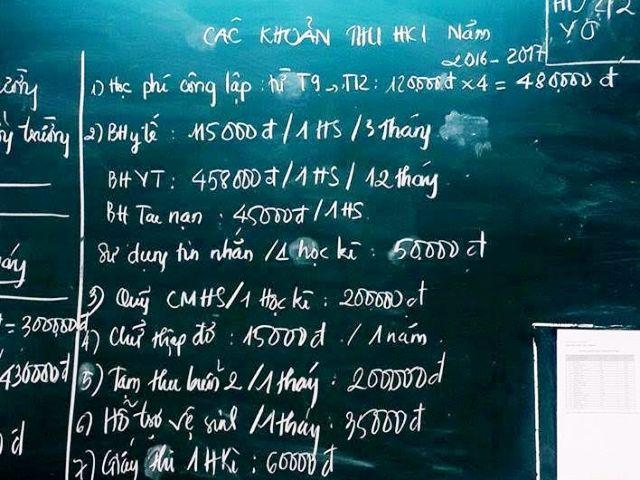 CÁC KHOẢN THU HK1 Năm
2016-2017
1) Học phí công lập: từ T9 → T12: 120000đ x 4 = 480000đ
2) BH y tế : 115000đ / 1 HS / 3 tháng
BHYT: 458000đ / 1 HS / 12 tháng
BH Tai nạn : 45000đ / 1HS
Sử dụng tin nhắn / 1 học kì : 50000đ
3) Quỹ CMHS / 1 Học kì : 200000đ
4) Chữ thập đỏ : 15000đ / 1 năm
5) Tạm thu buổi 2 / 1 tháng : 200000đ
6) Hỗ trợ vệ sinh / 1 tháng : 35000đ
7) Giấy thi 1 HKì : 60000đ
trường
= 300000đ
430000đ
đ